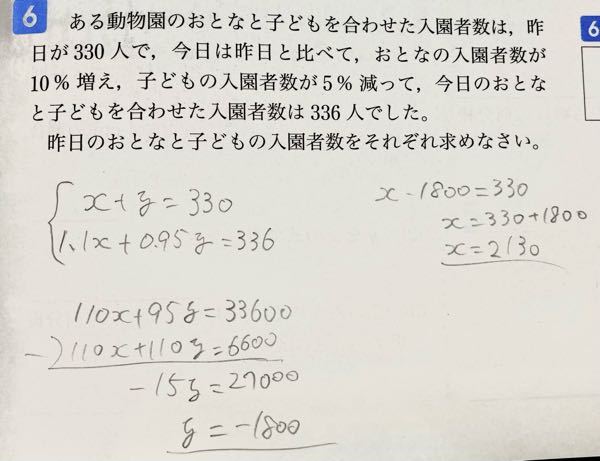 6 ある動物園のおとなと子どもを合わせた入園者数は，昨
日が330人で，今日は昨日と比べて，おとなの入園者数が
10％増え，子どもの入園者数が5％減って，今日のおとな
と子どもを合わせた入園者数は336人でした。
昨日のおとなと子どもの入園者数をそれぞれ求めなさい。
x+y=330
1.1x+0.95y=336
110x+95y=33600
-)110x+110y=6600
-15y=27000
y=-1800
x-1800=330
x=330+1800
x=2130
6